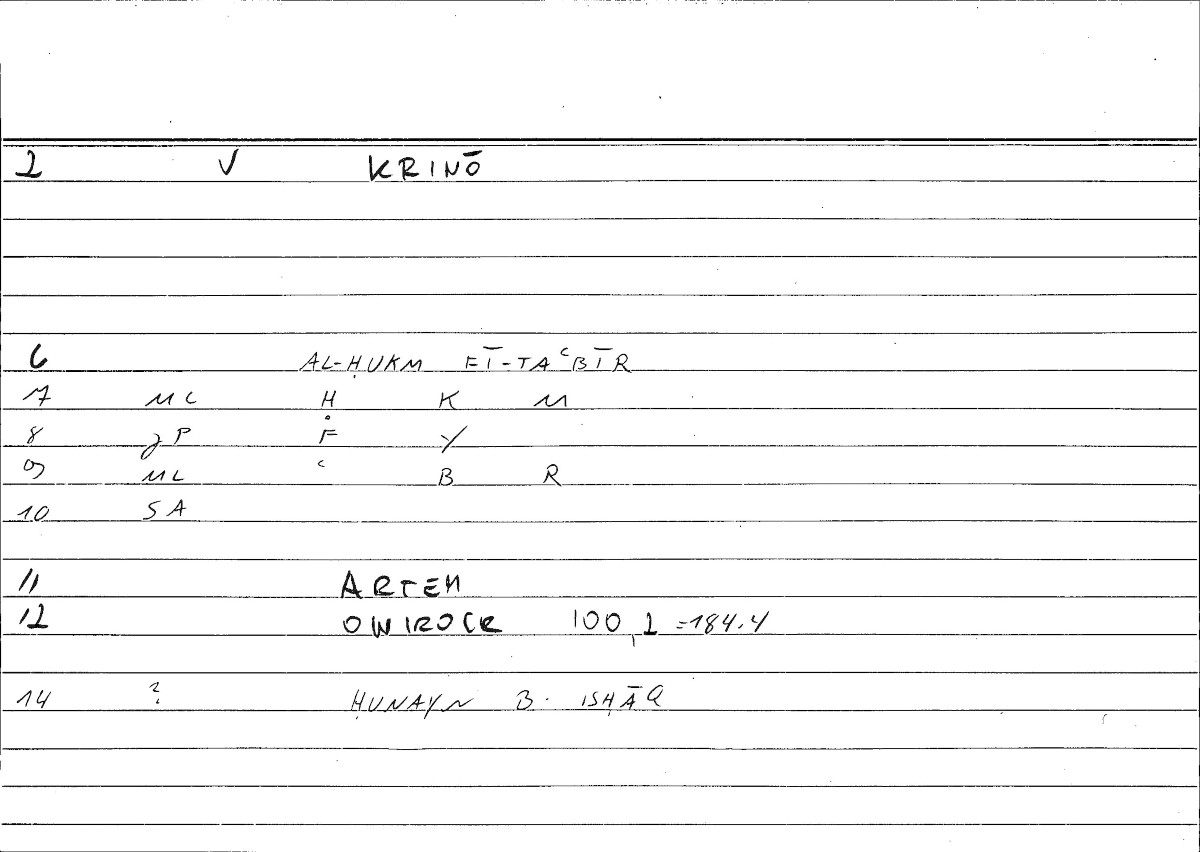 2 V KRINŌ
6 AL-ḤUKM FĪ-TAʿBĪR
7 ML Ḥ K M
8 gP F Y
9 ML ʿ B R
10 SA
11 ARTEM
12 OWIROCR 100,2 =184.4
14 ? ḤUNAYN B. ISḤĀQ